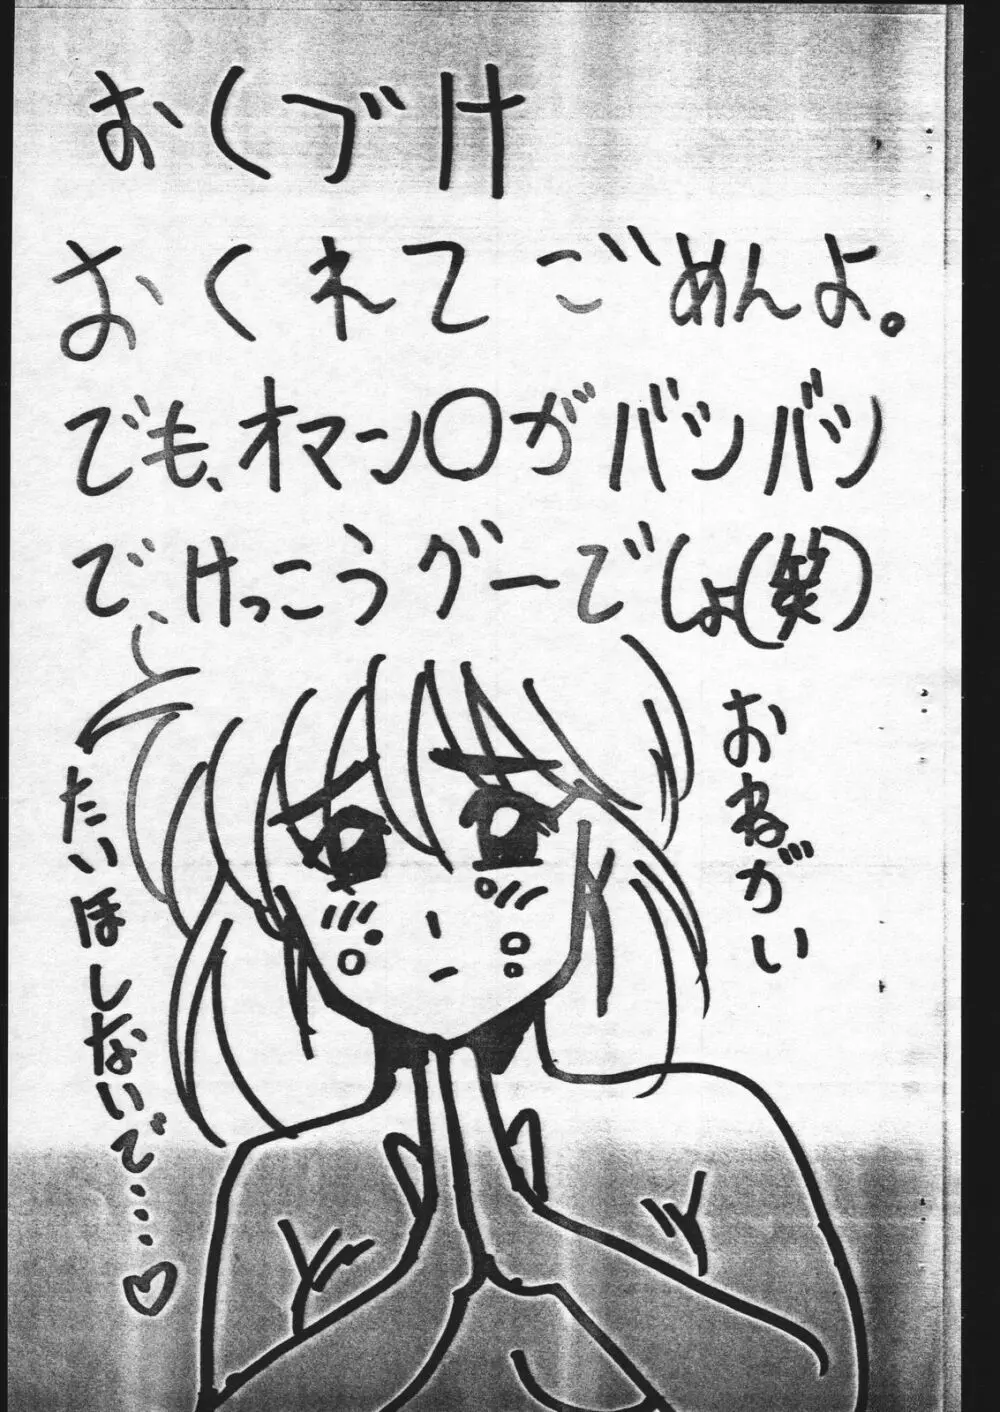 おくづけ
おくれてごめんよ。
でも、オマン〇がバツバツ
で、けっこうグーでしょ(笑)
おねがい
たいほしないで…‥♡